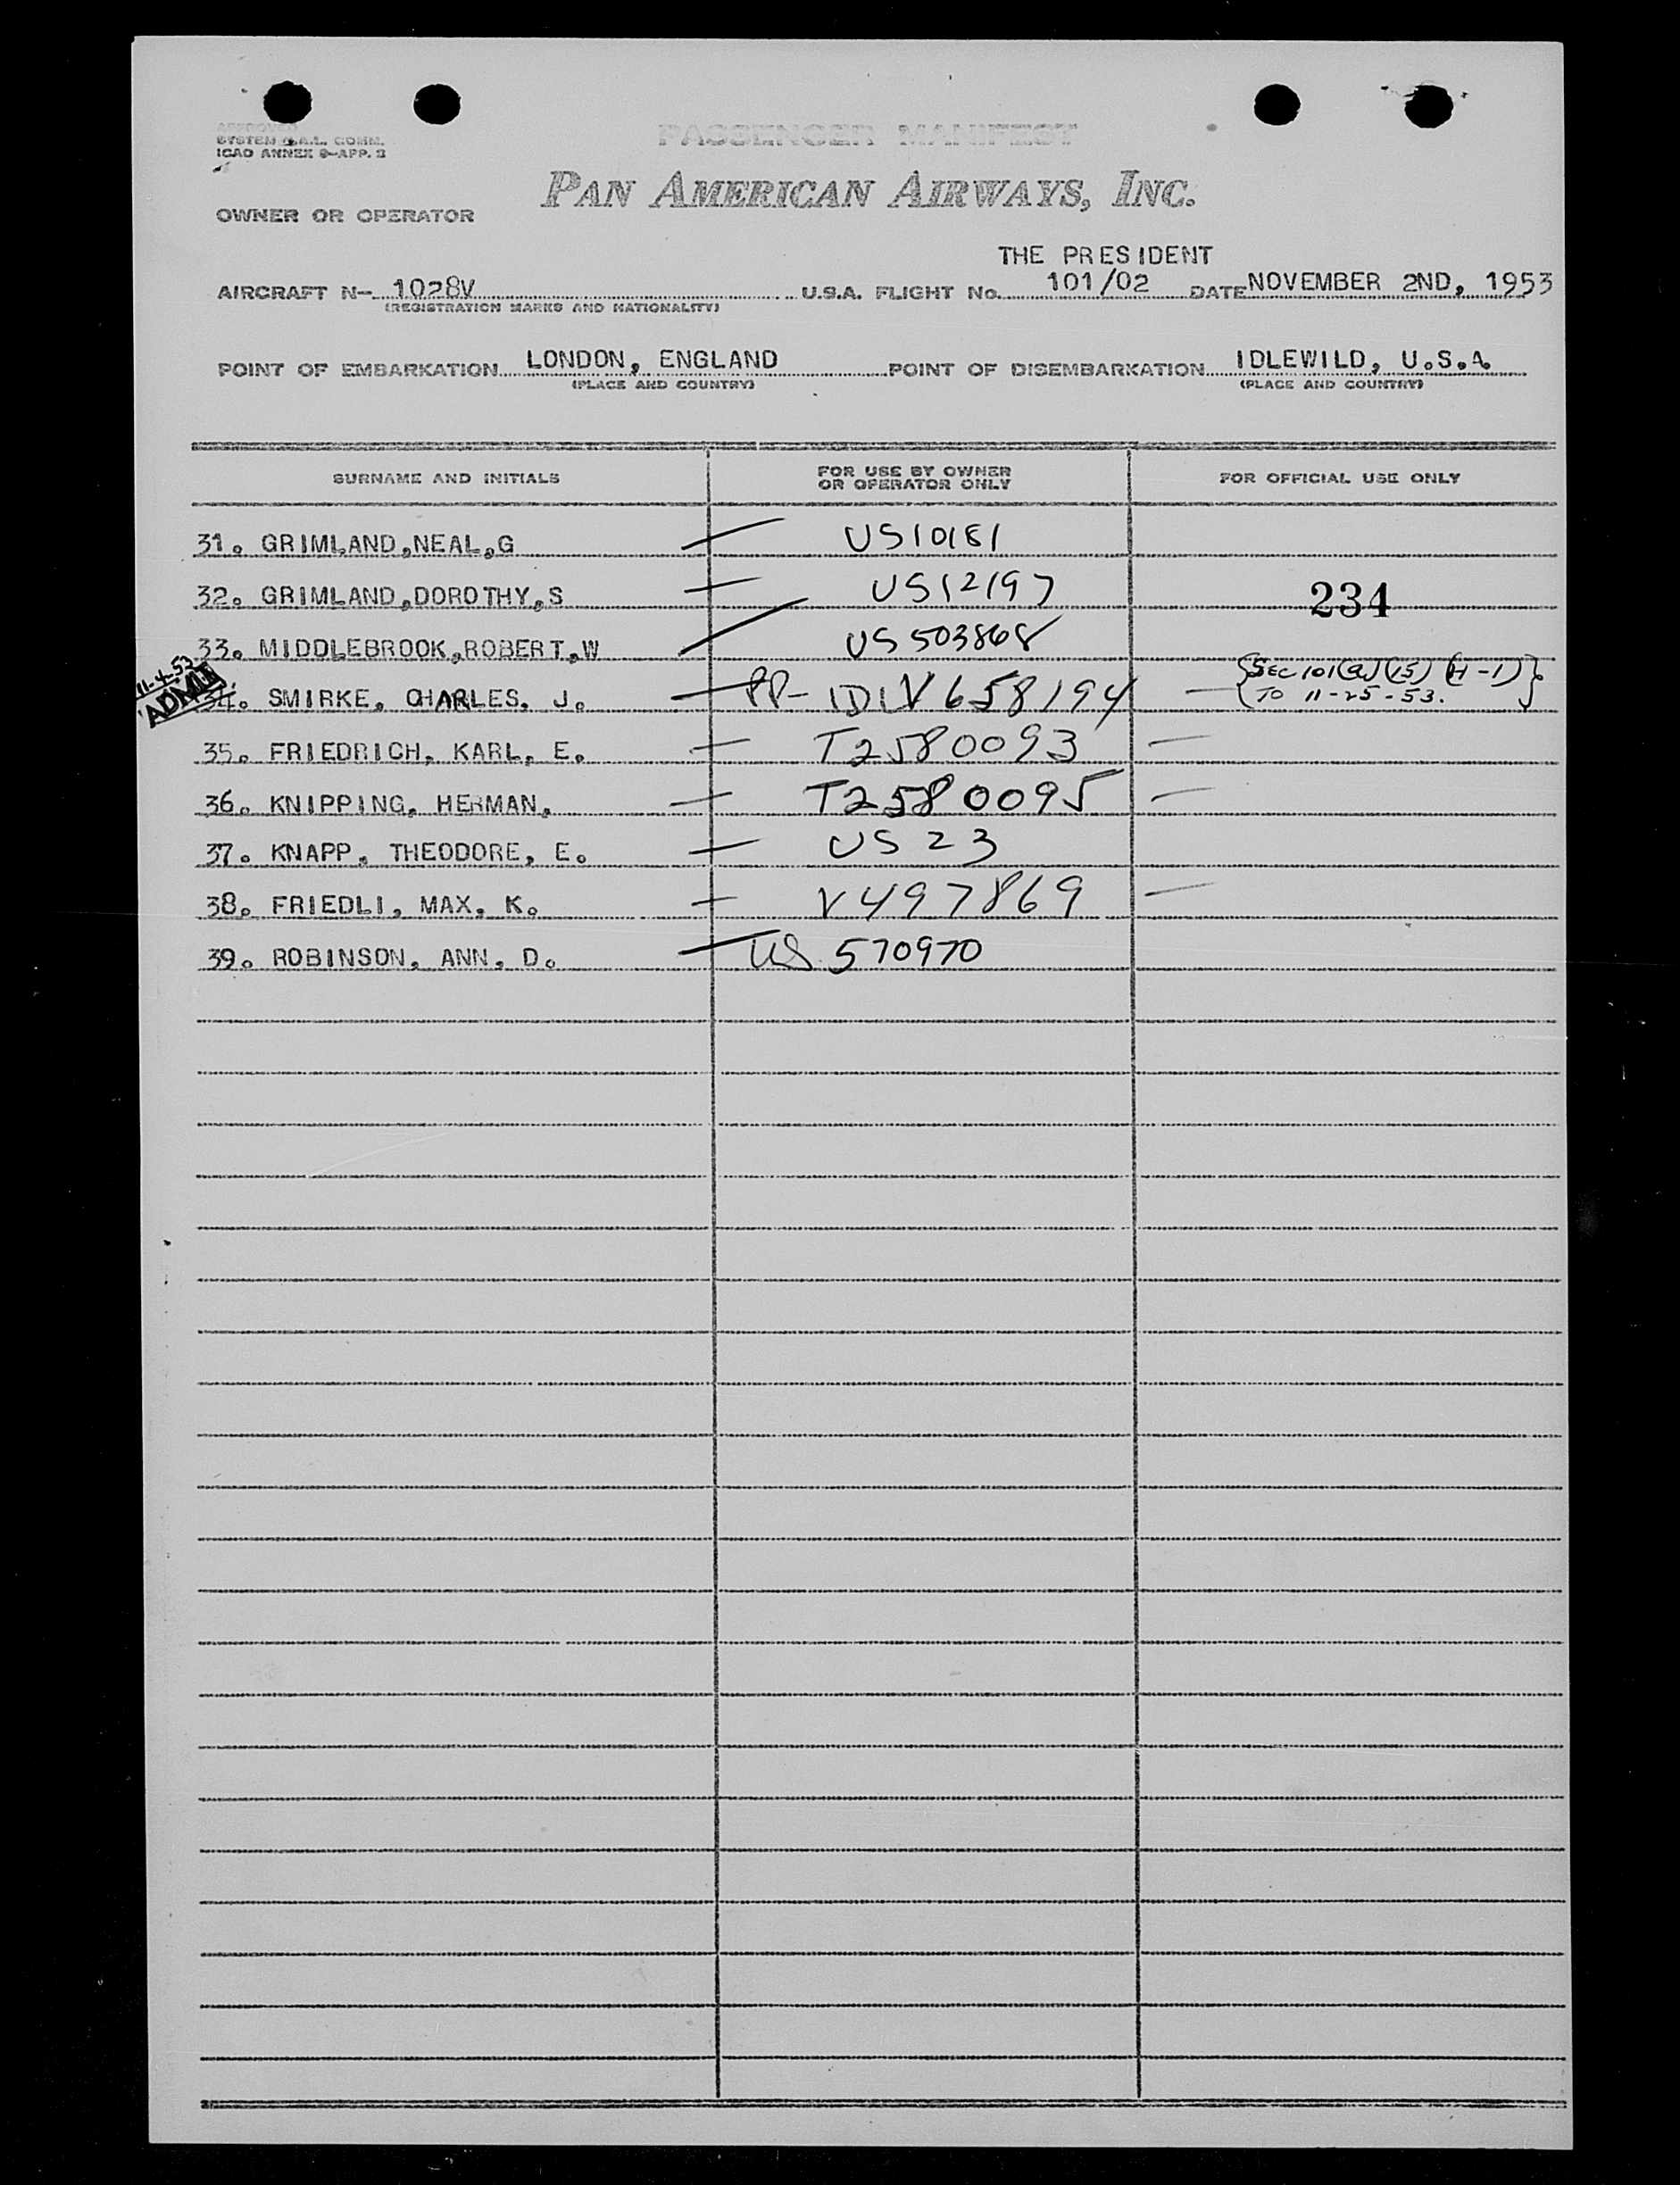 APPROVED
SYSTEM G.A.L. COMM.
ICAO ANNEX 9-APP. 3
PASSENGER MANIFEST
PAN AMERICAN AIRWAYS, INC.
OWNER OR OPERATOR
THE PRESIDENT
AIRCRAFT N- 1028V U.S.A. FLIGHT No. 101/02 DATE NOVEMBER 2ND, 1953
(REGISTRATION MARKS AND NATIONALITY)
POINT OF EMBARKATION LONDON, ENGLAND POINT OF DISEMBARKATION IDLEWILD, U.S.A.
(PLACE AND COUNTRY) (PLACE AND COUNTRY)
SURNAME AND INITIALS FOR USE BY OWNER OR OPERATOR ONLY FOR OFFICIAL USE ONLY
31. GRIMLAND,NEAL,G — US10181
32. GRIMLAND,DOROTHY,S — US12197 234
33. MIDDLEBROOK,ROBERT,W — US 503868
11-4-53 ADMIT
34. SMIRKE, CHARLES, J. — PP- 1D1V 658194 — {SEC 101(a)(15)(H-1)}
TO 11-25-53.
35. FRIEDRICH, KARL, E. — T2580093 —
36. KNIPPING, HERMAN, — T2580095 —
37. KNAPP, THEODORE, E. — US 23
38. FRIEDLI, MAX, K. — V497869 —
39. ROBINSON, ANN, D. — US 570970